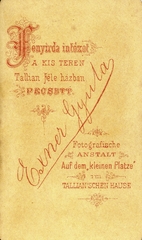 Fenyirda intézet
A KIS TEREN
Tallian féle házban
PECSETT.
Exner Gyula
Fotografische
ANSTALT
Auf dem „kleinen Platze“
IM
TALLIAN'SCHEN HAUSE